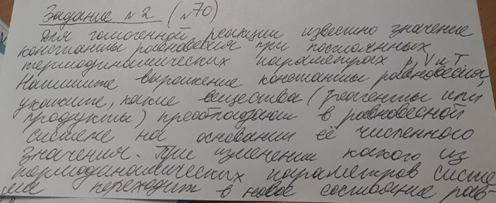 Задание №2 (№70)
Для гомогенной реакции известно значение
константы равновесия при постоянных
термодинамических параметрах p, V и T.
Напишите выражение константы равновесия,
укажите, какие вещества (реагенты или
продукты) преобладают в равновесной
системе на основании её численного
значения. При изменении какого из
термодинамических параметров систе
ма переходит в новое состояние рав-